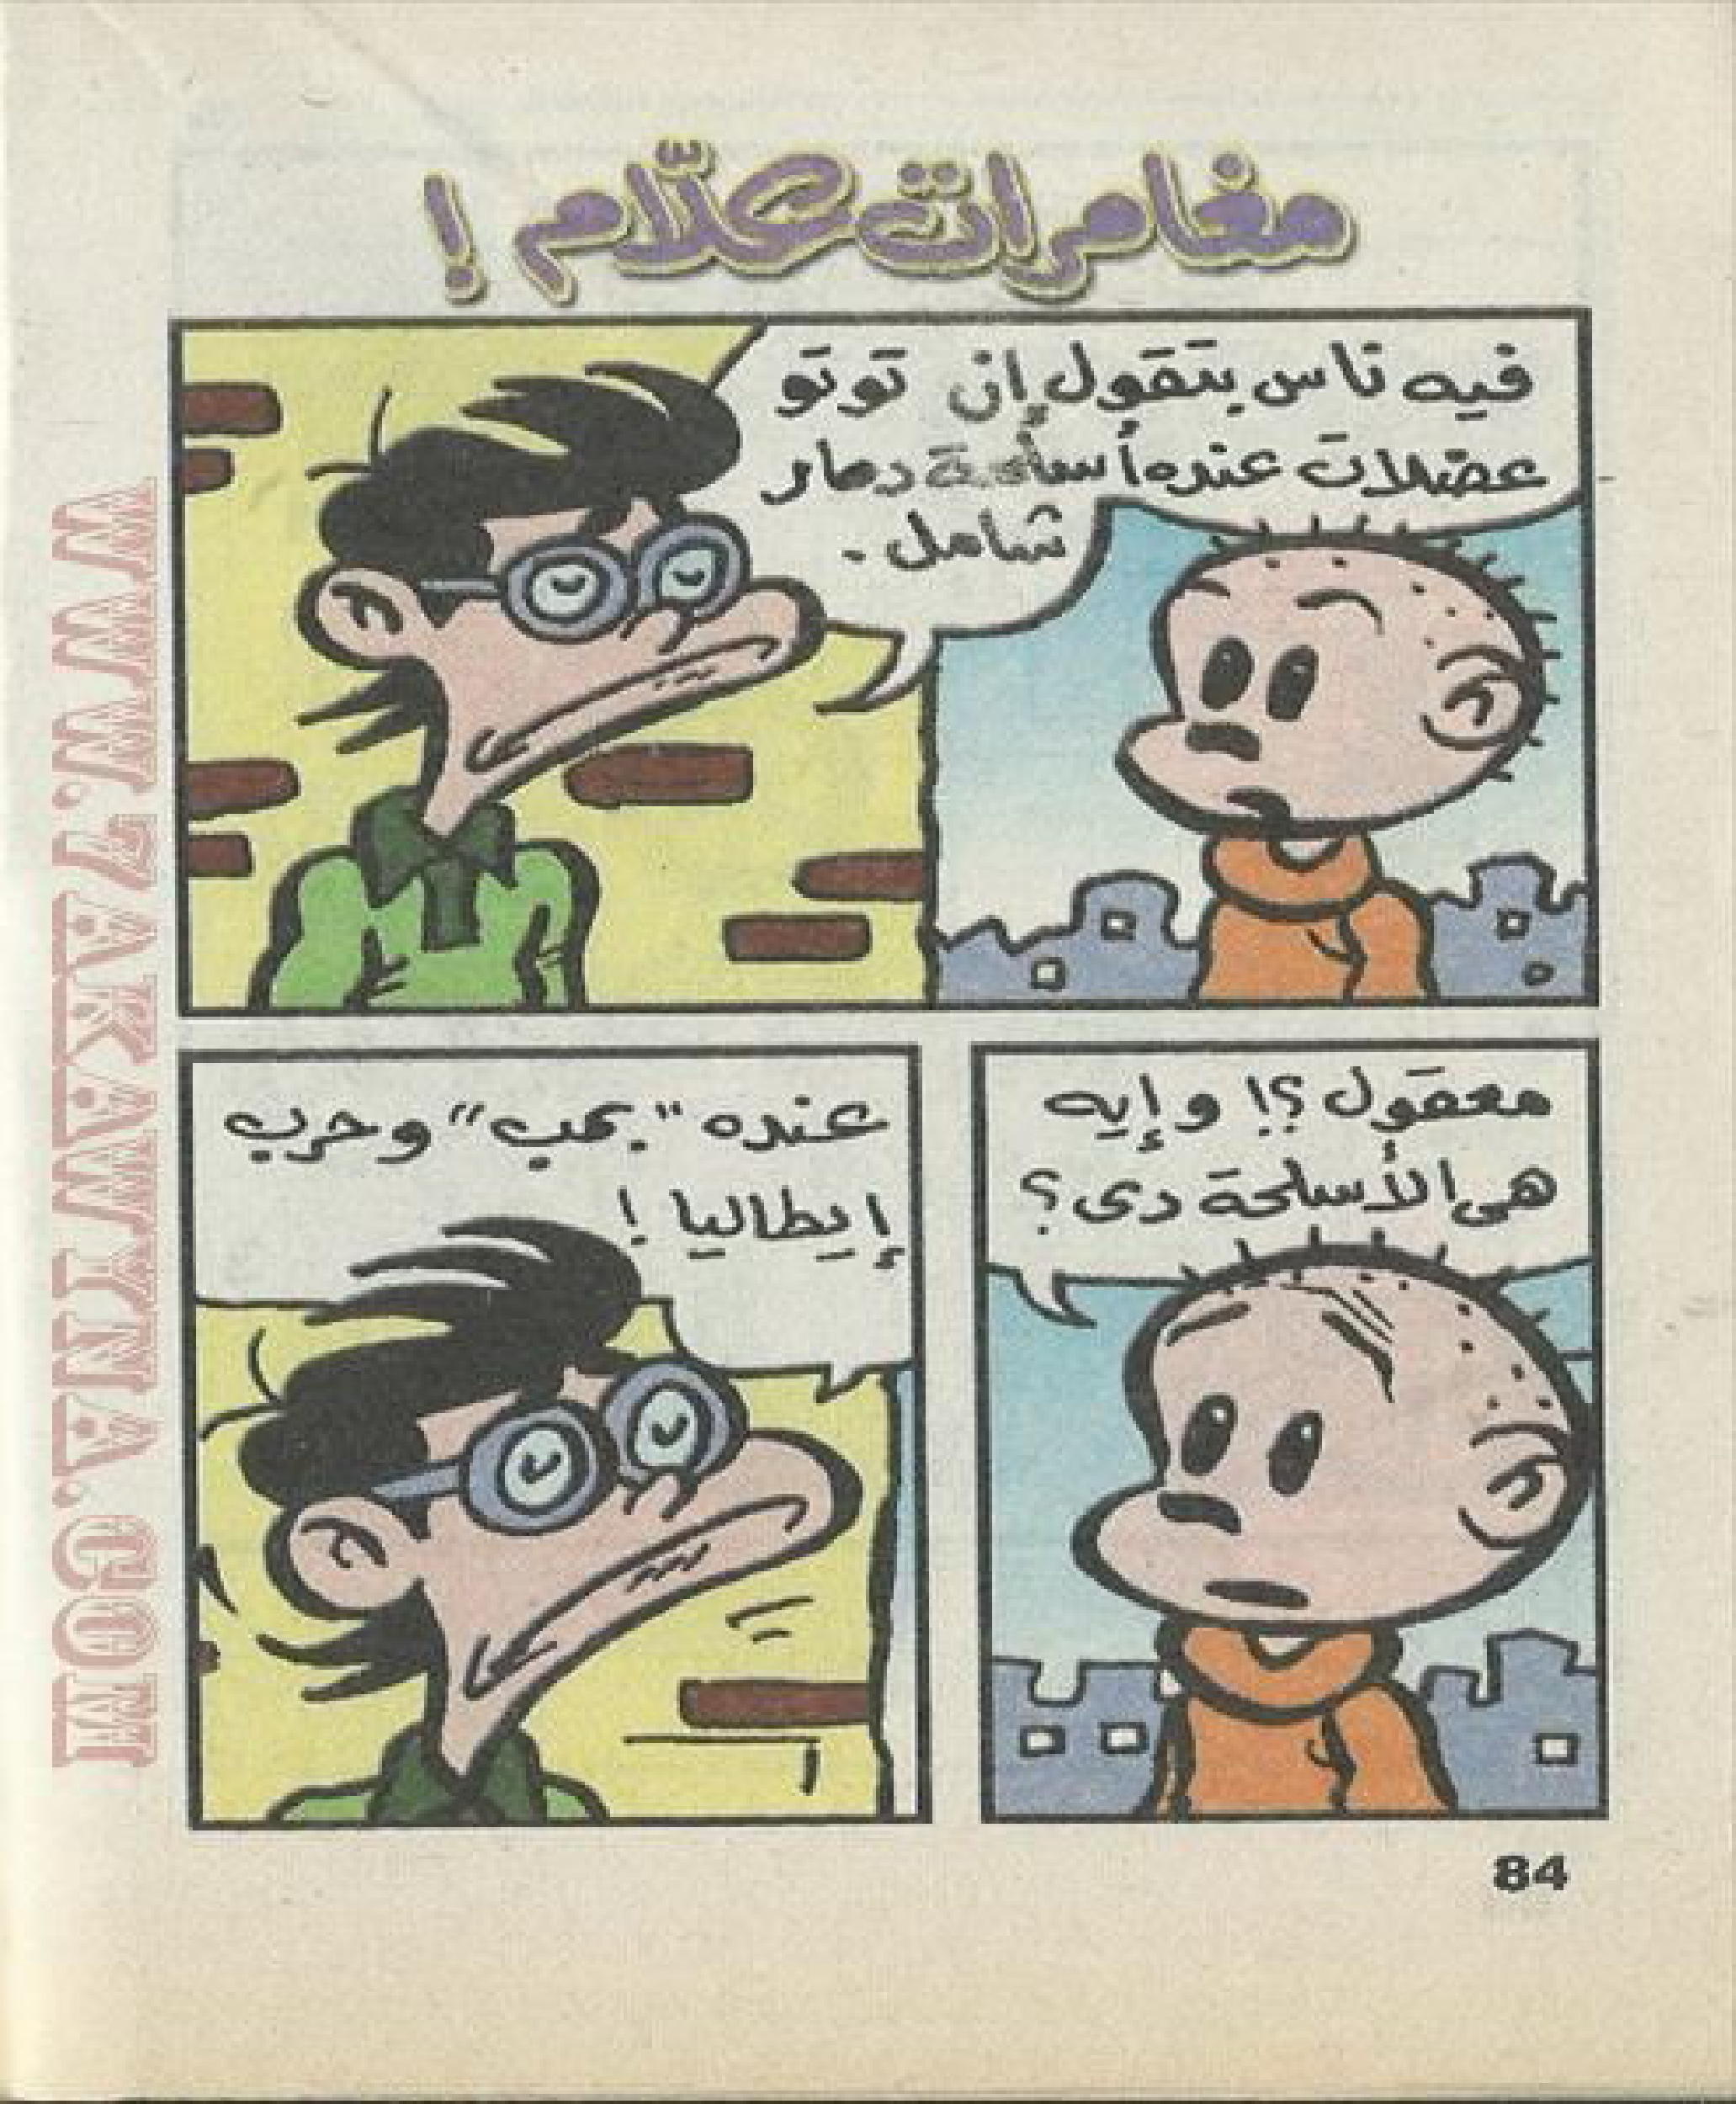 مغامرات علّام !
فيه ناس بتقول إن توتو
عضلات عنده أسلحة دمار
شامل .
معقول ؟! و إيه
هى الأسلحة دى ؟
عنده "بمب" وحرب
إيطاليا !
84
WWW.7AKAWITNA.COM